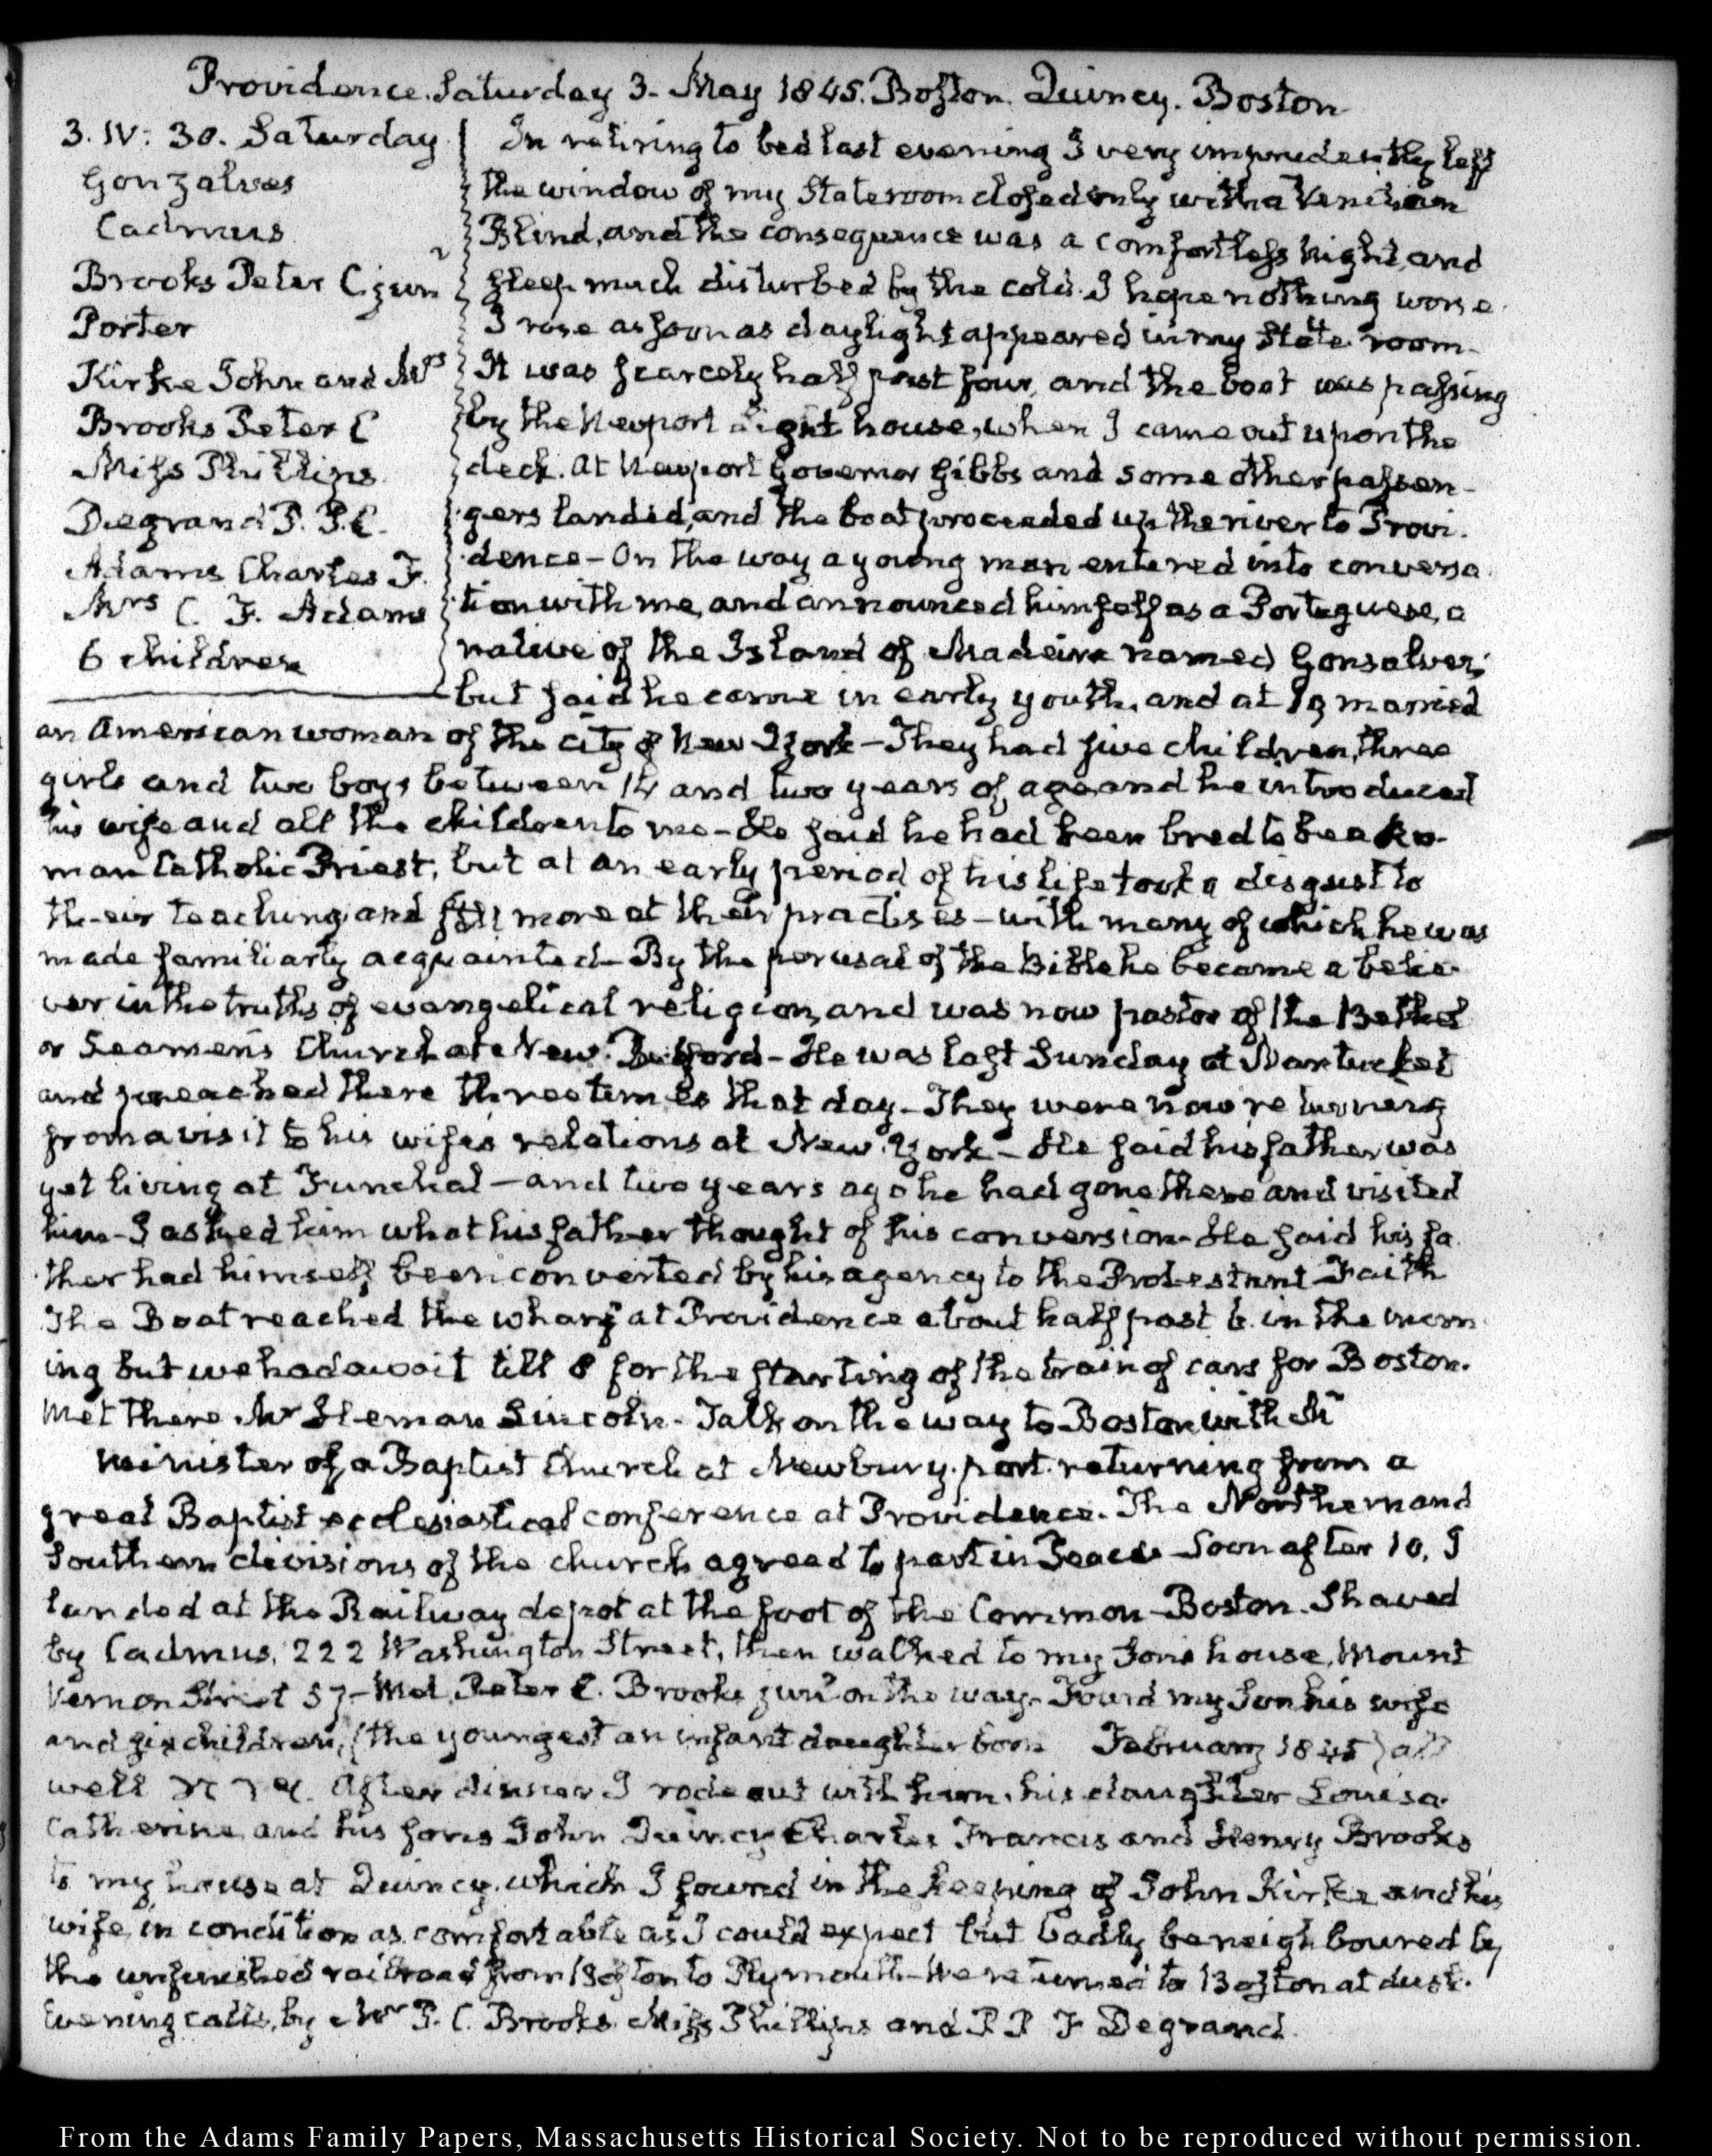 Providence. Saturday 3. May 1845. Boston. Quincy. Boston
3. IV: 30. Saturday
Gonzalves
Cadmus
Brooks Peter C junr
Porter
Kirke John and Mrs
Brooks Peter C
Miss Phillips
Degrand P. P.
Adams Charles F.
Mrs C. F. Adams
6 children
In retiring to bed last evening I very imprudently left
the window of my State room closed only with a Venitian
Blind, and the consequence was a comfortless night, and
sleep much disturbed by the cold. I hope nothing worse.
I rose as soon as daylight appeared in my State room-
It was scarcely half past four, and the boat was passing
by the Newport Light house, when I came out upon the
deck. At Newport Governor Gibbs and some other passen-
gers landed, and the boat proceeded up the river to Provi-
dence- On the way a young man entered into conversa-
tion with me, and announced himself as a Portuguese, a
native of the Island of Madeira named Gonsalves;
but said he came in early youth, and at 19 married
an American woman of the city of New York- They had five children, three
girls and two boys between 14 and two years of age, and he introduced
his wife and all the children to me- He said he had been bred to be a Ro-
man Catholic Priest, but at an early period of his life took a disgust to
their teaching, and still more at their practises- with many of which he was
made familiarly acquainted- By the perusal of the Bible he became a belie-
ver in the truths of evangelical religion, and was now pastor of the Bethel
or Seamen's Church at New. Bedford- He was last Sunday at Nantucket
and preached there three times that day- They were now returning
from a visit to his wife's relations at New. York- He said his father was
yet living at Funchal- and two years ago he had gone there and visited
him- I asked him what his father thought of his conversion- He said his fa-
ther had himself been converted by his agency to the Protestant Faith
The Boat reached the wharf at Providence about half past 6 in the morn-
ing but we had await till 8 for the starting of the train of cars for Boston.
Met there Mr Heman Lincoln- Talk on the way to Boston with Mr
minister of a Baptist Church at Newbury. port. returning from a
great Baptist ecclesiastical conference at Providence. The Northern and
Southern divisions of the church agreed to part in Peace- Soon after 10, I
landed at the Railway depot at the foot of the Common- Boston. Shaved
by Cadmus, 222 Washington Street, then walked to my Sons house, Mount
Vernon Street 57- Met Peter C. Brooks junr on the way. Found my Son his wife
and six children, (the youngest an infant daughter born February 1845) all
well After dinner I rode out with him, his daughter Louisa
Catherine, and his sons John Quincy Charles Francis and Henry Brooks
to my house at Quincy, which I found in the keeping of John Kirke and his
wife, in condition as comfortable as I could expect but badly beneighboured by
the unfinished railroad from Boston to Plymouth- We returned to Boston at dusk.
Evening calls, by Mr P. C. Brooks Miss Phillips and P P F Degrand.
From the Adams Family Papers, Massachusetts Historical Society. Not to be reproduced without permission.